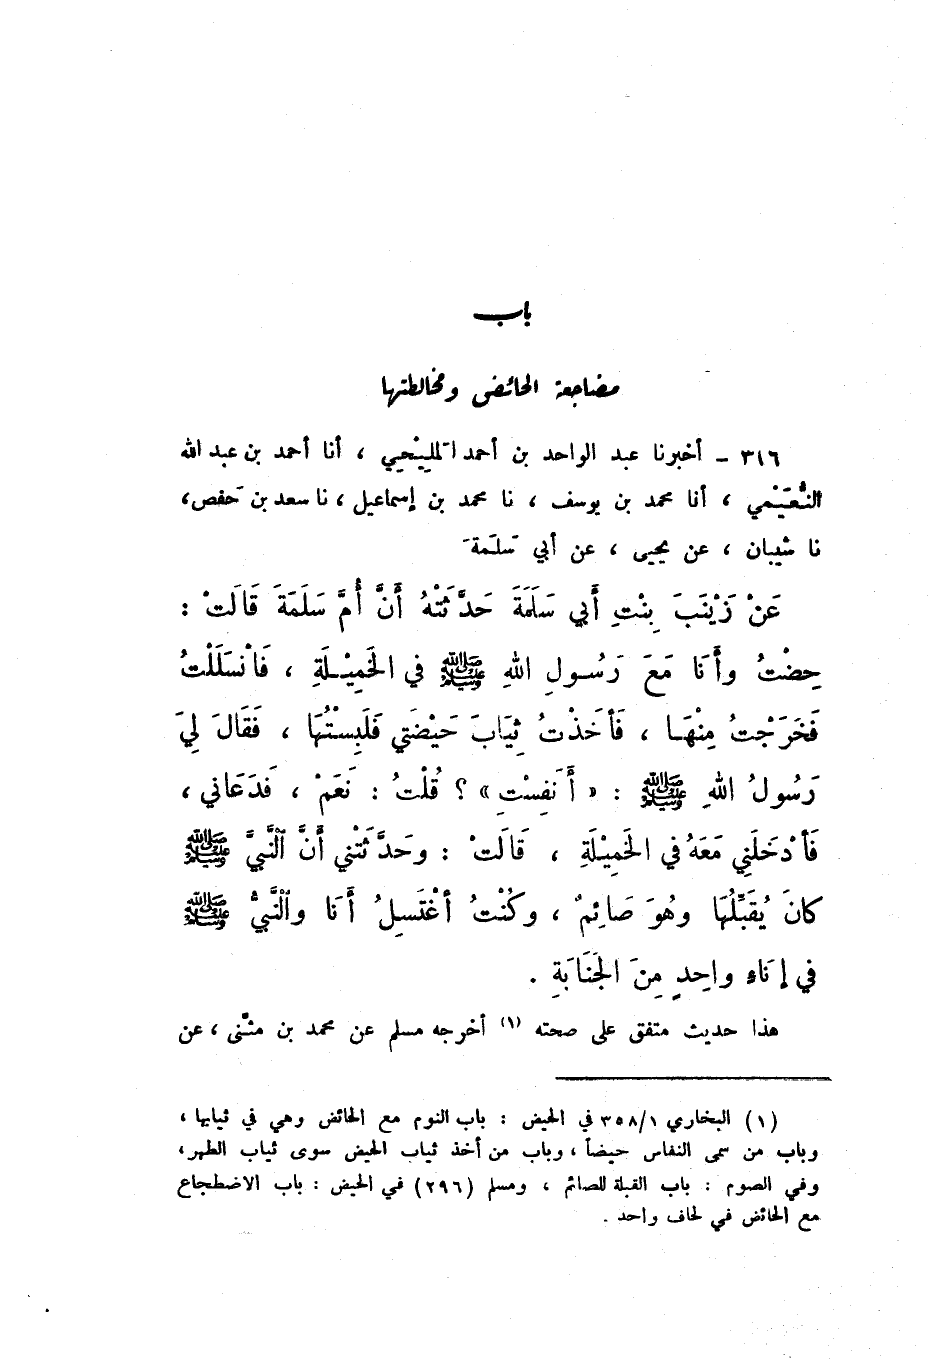 باب
مضاجعة الحائض ومخالطتها
٣١٦ – أخبرنا عبد الواحد بن أحمد المليْحي ، أنا أحمد بن عبد الله
النُّعَيْمي ، أنا محمد بن يوسف ، نا محمد بن إسماعيل ، نا سعد بن حَفص ،
نا شيبان ، عن يحيى ، عن أبي سَلَمة َ
عَنْ زَيْنَبَ بِنْتِ أَبي سَلَمَةَ حَدَّثَتْهُ أَنَّ أُمَّ سَلَمَةَ قَالَتْ :
حِضْتُ وأَنَا مَعَ رَسُولِ اللهِ ﷺ في الخَمِيْلَةِ ، فَانْسَلَلْتُ
فَخَرَجْتُ مِنْهَا ، فَأَخَذْتُ ثِيَابَ حَيْضَتي فَلَبِسْتُهَا ، فَقَالَ لِيَ
رَسُولُ اللهِ ﷺ : « أَنَفِسْتِ » ؟ قُلْتُ : نَعَمْ ، فَدَعَاني ،
فَأَدْخَلَني مَعَهُ في الخَمِيْلَةِ ، قَالَتْ : وحَدَّثَتْني أَنَّ ٱلنَّبيَّ ﷺ
كانَ يُقَبِّلُهَا وهُوَ صَائِمٌ ، وكُنْتُ أَغْتَسِلُ أَنَا وٱلنَّبيُّ ﷺ
في إِنَاءٍ واحِدٍ مِنَ الجَنَابَةِ .
هذا حديث متفق على صحته (١) أخرجه مسلم عن محمد بن مثنّى ، عن
(١) البخاري ٣٥٨/١ في الحيض : باب النوم مع الحائض وهي في ثيابها ،
وباب من سمى النفاس حيضاً ، وباب من أخذ ثياب الحيض سوى ثياب الطهر ،
وفي الصوم : باب القبلة للصائم ، ومسلم (٢٩٦) في الحيض : باب الاضطجاع
مع الحائض في لحاف واحد .